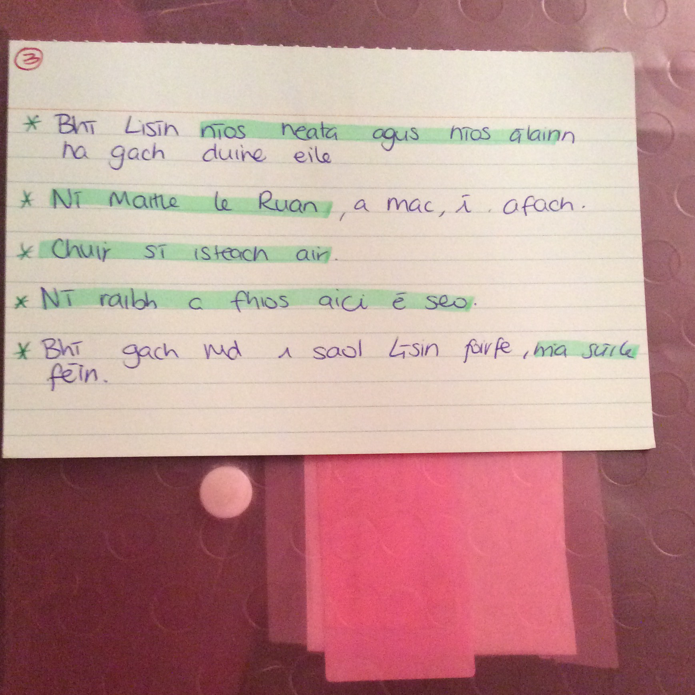 3
* Bhī Lisīn nīos neata agus nīos ālainn
na gach duine eile
* Nī Maithe le Ruan, a mac, ī. afach.
* Chuir sī isteach air.
* Nī raibh a fhios aici ē seo.
* Bhī gach rud i saol Līsin foirfe,
fēin.